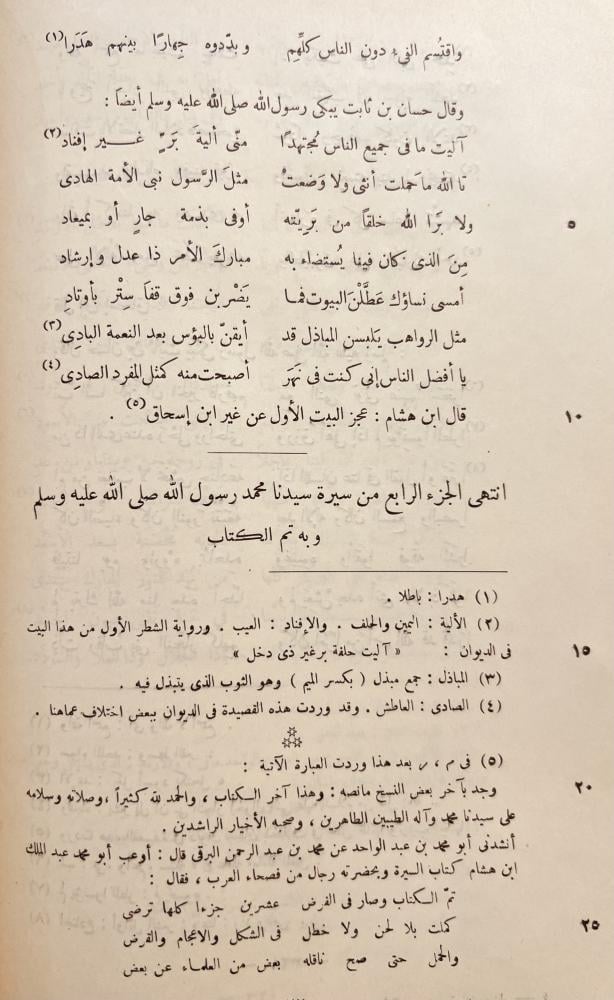 واقتُسم الفىء دون الناس كلِّهِم وبدّدوه جِهارًا بينهم هَدَرا(١)
وقال حسان بن ثابت يبكى رسول الله صلى الله عليه وسلم أيضًا :
آليت ما فى جميع الناس مُجتهدًا منّى أليةَ بَرٍّ غير إفناد(٢)
تا لله ما حملت أنثى ولا وَضعتْ مثلَ الرَّسول نبى الأمة الهادى
٥ ولا بَرَا الله خلقًا من بَرِيّته أوفى بذمة جارٍ أو بميعاد
مِنَ الذى كان فينا يُستضاء به مباركَ الأمر ذا عدل وإرشاد
أمسى نساؤك عَطَّلْنَ البيوت فما يَضْربن فوق قفَا سِتْر بأوتادِ
مثل الرواهب يَلبسن المباذل قد أيقنّ بالبؤس بعد النعمة البادِى(٣)
يا أفضل الناس إنى كنت فى نَهَر أصبحت منه كمثل المفرد الصادِى(٤)
١٠ قال ابن هشام : عجز البيت الأول عن غير ابن إسحاق(٥) .
انتهى الجزء الرابع من سيرة سيدنا محمد رسول الله صلى الله عليه وسلم
وبه تم الكتاب
(١) هدرا : باطلا .
(٢) الألية : اليمين والحلف . والإفناد : العيب . ورواية الشطر الأول من هذا البيت
١٥ فى الديوان : « آليت حلفة بر غير ذى دخل »
(٣) المباذل : جمع مبذل ( بكسر الميم ) وهو الثوب الذى يتبذل فيه .
(٤) الصادى : العاطش . وقد وردت هذه القصيدة فى الديوان ببعض اختلاف عما هنا .
(٥) فى م ، ر بعد هذا وردت العبارة الآتية :
٢٠ وجد بآخر بعض النسخ ما نصه : وهذا آخر الكتاب ، والحمد لله كثيرًا ، وصلاته وسلامه
على سيدنا محمد وآله الطيبين الطاهرين ، وصحبه الأخيار الراشدين .
أنشدنى أبو محمد بن عبد الواحد عن محمد بن عبد الرحمن البرقى قال : أوعب أبو محمد عبد الملك
ابن هشام كتاب السيرة وبحضرته رجال من فصحاء العرب ، فقال :
تمّ الكتاب وصار فى الفرض عشرين جزءا كلها ترضى
٢٥ كملت بلا لحن ولا خطل فى الشكل والاعجام والقرض
والحمل حتى صح ناقله بعض من العلماء عن بعض